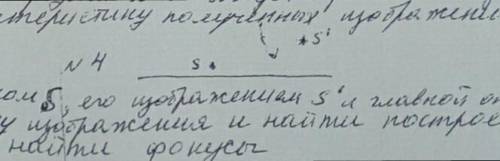 полученных изображени
S'
№ 4
S
S, его изображением S' и главной оп
изображения и найти построе
найти фокусы